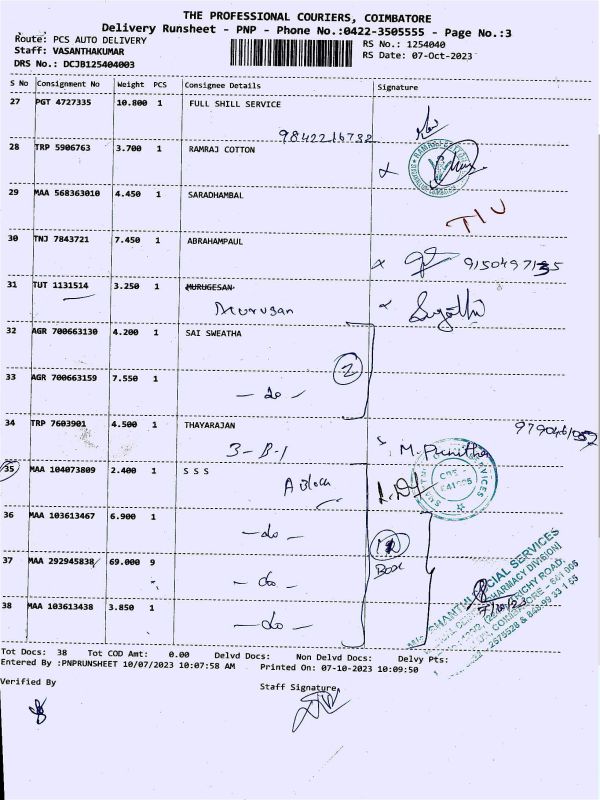 THE PROFESSIONAL COURIERS, COIMBATORE
Delivery Runsheet - PNP - Phone No.:0422-3505555 - Page No.:3
Route: PCS AUTO DELIVERY
RS No.: 1254040
Staff: VASANTHAKUMAR
RS Date: 07-Oct-2023
DRS No.: DCJB125404003
S No Consignment No Weight PCS Consignee Details Signature
27 PGT 4727335 10.800 1 FULL SHILL SERVICE
9842216732
28 TRP 5906763 3.700 1 RAMRAJ COTTON
29 MAA 568363010 4.450 1 SARADHAMBAL
TIU
30 TNJ 7843721 7.450 1 ABRAHAMPAUL
31 TUT 1131514 3.250 1 MURUGESAN
Murugan
32 AGR 700663130 4.200 1 SAI SWEATHA
2
33 AGR 700663159 7.550 1
- do -
34 TRP 7603901 4.500 1 THAYARAJAN
3-B-1 M. Punitha
35 MAA 104073809 2.400 1 S S S
A Block
36 MAA 103613467 6.900 1
- do -
37 MAA 292945838 69.000 9
Box
- do -
38 MAA 103613438 3.850 1
- do -
Tot Docs: 38 Tot COD Amt: 0.00 Delvd Docs: Non Delvd Docs: Delvy Pts:
Entered By :PNPRUNSHEET 10/07/2023 10:07:58 AM Printed On: 07-10-2023 10:09:50
Verified By
Staff Signature